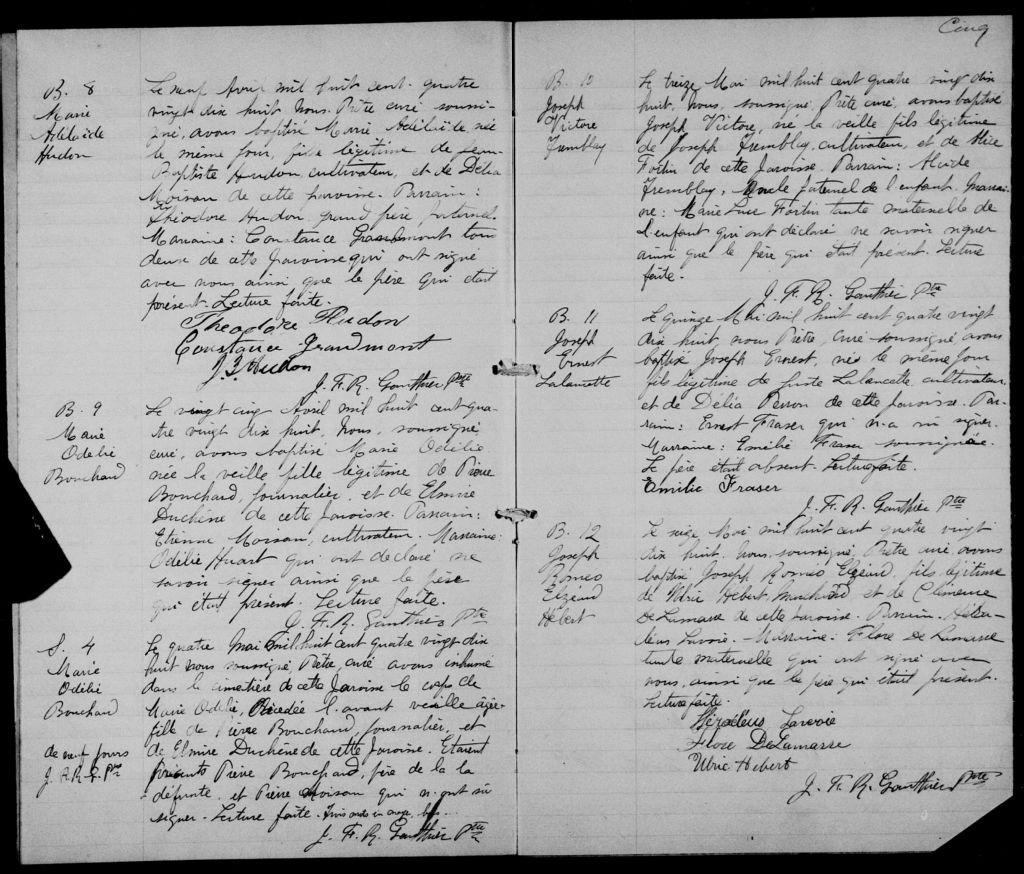 Cinq
B. 8
Marie
Adélaïde
Hudon
Le neuf Avril mil huit cent quatre
vingt dix huit nous Prêtre curé soussi-
gné, avons baptisé Marie Adélaïde née
le même jour, fille légitime de Jean-
Baptiste Hudon, cultivateur, et de Délia
Moison de cette paroisse. Parrain:
Théodore Hudon, grand père paternel.
Marraine: Constance Grandmont tous
deux de cette paroisse qui ont signé
avec nous ainsi que le père qui était
présent. Lecture faite.
Theodore Hudon
Constance Grandmont
J. Hudon
J. F. R. Gauthier Ptre
B. 9
Marie
Odélie
Bouchard
Le vingt cinq Avril mil huit cent qua-
tre vingt dix huit, Nous, soussigné
curé, avons baptisé Marie Odélie
née la veille fille légitime de Pierre
Bouchard, journalier, et de Elmire
Duchêne de cette paroisse. Parrain:
Etienne Morsan, cultivateur. Marraine:
Odélie Huart qui ont déclaré ne
savoir signer ainsi que le père
qui était présent. Lecture faite.
J. F. R. Gauthier Ptre
S. 4
Marie
Odélie
Bouchard
de neuf jours
J. F. R. G. Ptre
Le quatre Mai mil huit cent quatre vingt dix
huit nous soussigné Prêtre, curé avons inhumé
dans le cimetière de cette paroisse le corps de
Marie Odélie, décédée l'avant veille âgée
fille de Pierre Bouchard journalier, et
de Elmire Duchêne de cette paroisse. Etaient
présents Pierre Bouchard, père de la la
défunte et Pierre Moisan qui n'ont su
signer. Lecture faite. Trois mots en marge bons.
J. F. R. Gauthier Ptre
B. 10
Joseph
Victore
Tremblay
Le treize Mai mil huit cent quatre vingt dix
huit, Nous, soussigné, Prêtre curé, avons baptisé
Joseph Victore, né la veille fils légitime
de Joseph Tremblay, cultivateur, et de Alice
Fortin de cette paroisse. Parrain: Alcide
Tremblay, oncle paternel de l'enfant. Marrai-
ne: Marie Luce Fortin tante maternelle de
l'enfant qui ont déclaré ne savoir signer
ainsi que le père qui était présent. Lecture
faite.
J. F. R. Gauthier Ptre
B. 11
Joseph
Ernest
Lalancette
Le quinze Mai mil huit cent quatre vingt
dix huit, nous Prêtre, curé soussigné avons
baptisé Joseph Ernest, né le même jour
fils légitime de Juste Lalancette, cultivateur,
et de Délia Perron de cette paroisse. Par-
rain: Ernest Fraser qui n'a su signer.
Marraine: Emélie Fraser soussignée.
Le père était absent. Lecture faite.
Emilie Fraser
J. F. R. Gauthier Ptre
B. 12
Joseph
Roméo
Elzéard
Hébert
Le seize Mai mil huit cent quatre vingt
dix huit, Nous, soussigné, Prêtre curé, avons
baptisé Joseph Roméo Elzéard, fils légitime
de Ulric Hébert marchand et de Clémence
De Lamarre de cette paroisse. Parrain
Lavoie. Marraine: Flore De Lamarre
tante maternelle qui ont signé avec
nous, ainsi que le père qui était présent.
Lecture faite.
Lavoie
Flore DeLamarre
Ulric Hebert
J. F. R. Gauthier Ptre